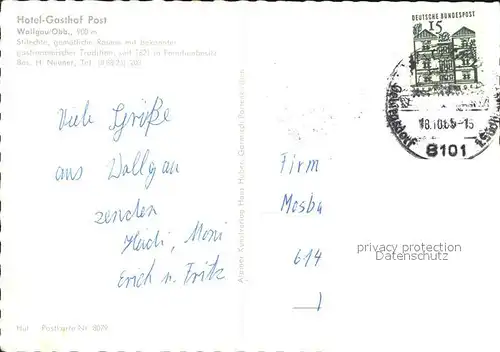 Hotel-Gasthof Post
Wallgau/Obb., 900 m
Stilechte, gemütliche Räume mit bekannter
gastronomischer Tradition, seit 1621 in Familienbesitz
Bes. H. Neuner, Tel.
DEUTSCHE BUNDESPOST
15
18.10.65-15
8101
Viele Grüße
aus Wallgau
senden
Heidi, Moni
Erich u. Fritz
Firm
Mosba
614
privacy protection
Datenschutz
Postkarte Nr. 8079